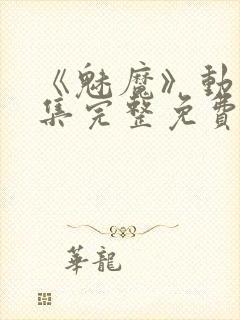 《魅魔》動
集完整免費
華龍